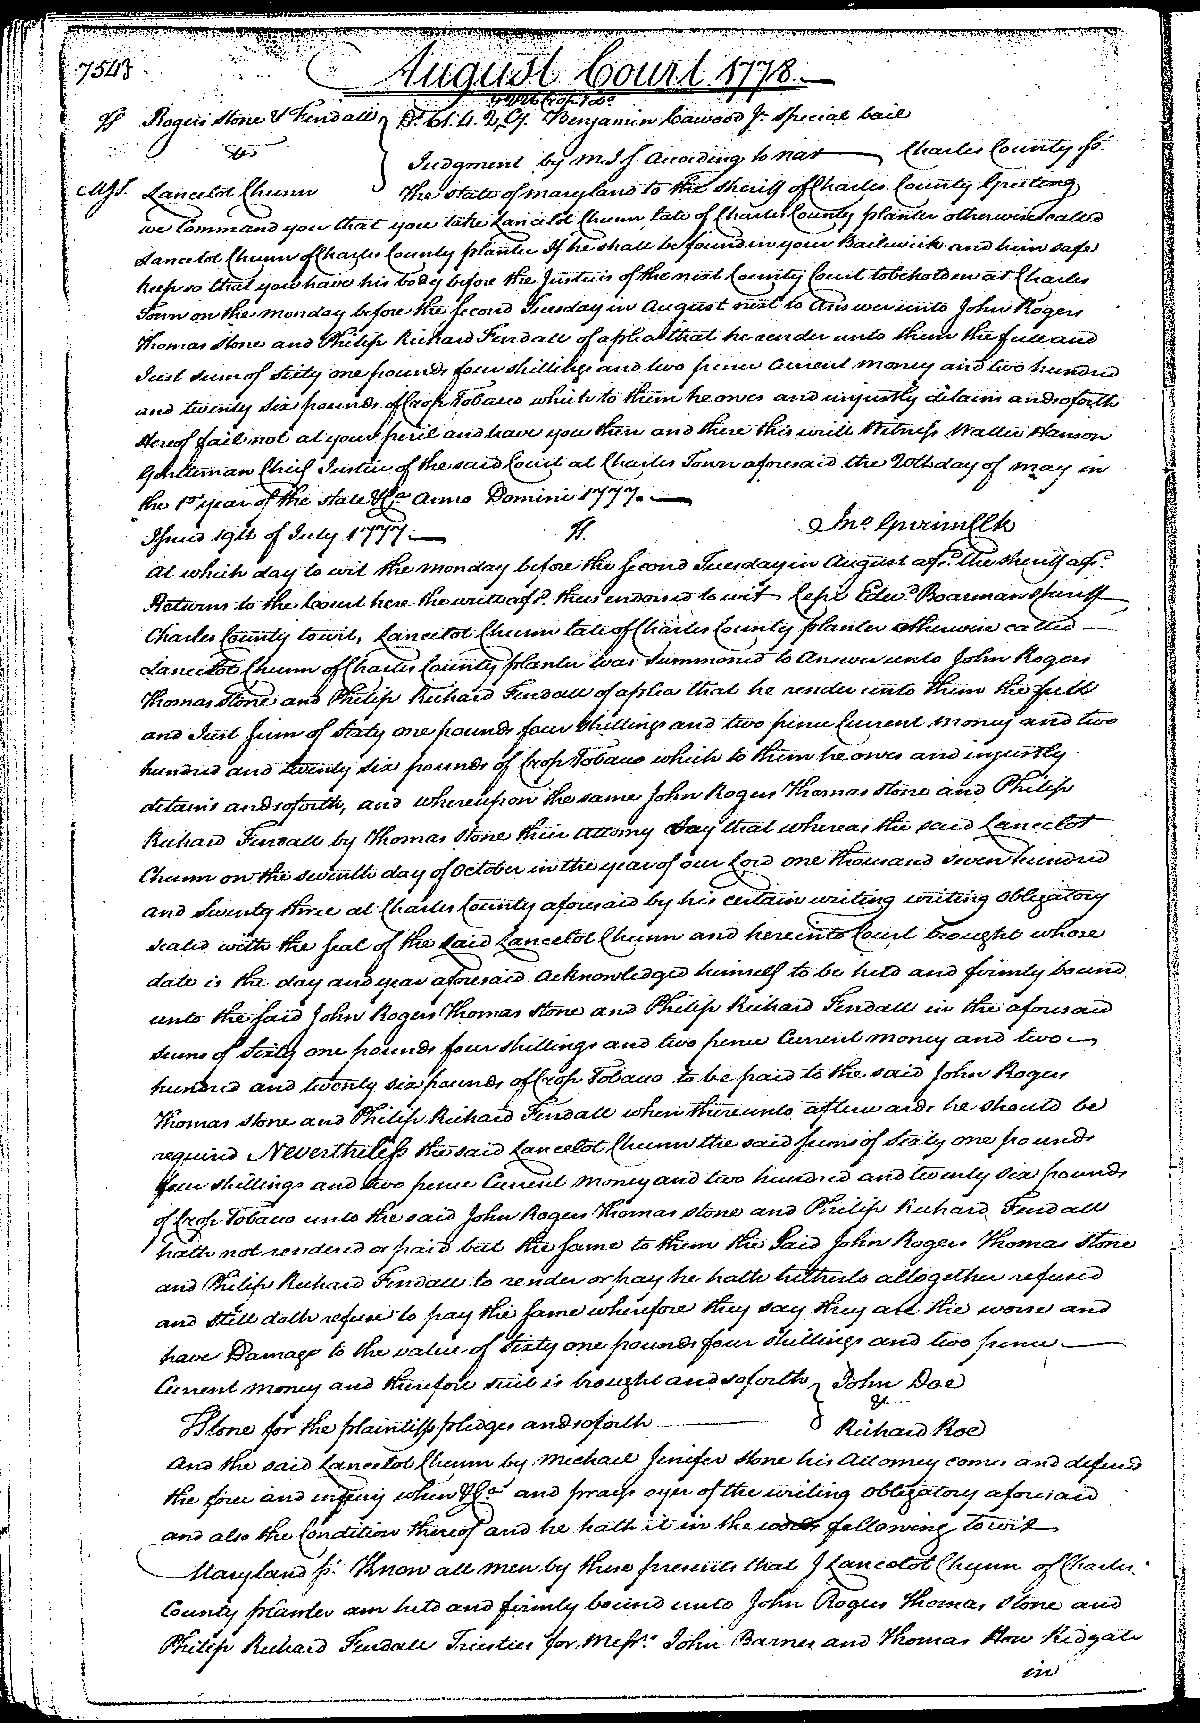 7543
August Court 1778
& 226 Crop Tobo
TS Rogers Stone & Fendall Dt. 61.4.2, Cy. Benjamin Cawood Jr. Special bail
vs Judgment by M J S According to nar — Charles County ss.
MJS. Lancelot Chunn The state of maryland to the sheriff of Charles County Greeting
we Command you that you take Lancelot Chunn late of Charles County planter otherwise called
Lancelot Chunn of Charles County planter If he shall be found in your Bailiwick and him safe
keep so that you have his body before the Justices of the next County Court to be holden at Charles
Town on the monday before the Second Tuesday in August next to Answer unto John Rogers
Thomas Stone and Philip Richard Fendall of a plea that he render unto them the full and
Just sum of Sixty one pounds four shillings and two pence Current money and two hundred
and twenty six pounds of Crop Tobacco which to them he owes and unjustly detains and so forth
Hereof fail not at your peril and have you then and there this writt Witness Walter Hanson
Gentleman Chief Justice of the said Court at Charles Town aforesaid the 20th day of may in
the 1st year of the state &Ca Anno Domini 1777. —
Issued 19th of July 1777. — Jno Gwinn Clk
At which day to wit the monday before the Second Tuesday in August afsd. the Sheriff afsd.
Returns to the Court here the writt afsd. thus endorsed to wit Cepi Edwd Boarman Sheriff
Charles County to wit, Lancelot Chunn late of Charles County planter otherwise called —
Lancelot Chunn of Charles County planter was Summoned to Answer unto John Rogers
Thomas Stone and Philip Richard Fendall of a plea that he render unto them the full
and Just Sum of Sixty one pounds four Shillings and two pence Current money and two
hundred and twenty six pounds of Crop Tobacco which to them he owes and unjustly
detains and so forth, and whereupon the same John Rogers Thomas Stone and Philip
Richard Fendall by Thomas Stone their Attorny Say that whereas the said Lancelot
Chunn on the seventh day of October in the year of our Lord one thousand seven hundred
and Seventy three at Charles County aforesaid by his certain writing writing Obligatory
sealed with the Seal of the said Lancelot Chunn and here into Court brought whose
date is the day and year aforesaid Acknowledged himself to be held and firmly bound
unto the said John Rogers Thomas Stone and Philip Richard Fendall in the aforesaid
sums of Sixty one pounds four shillings and two pence Current money and two —
hundred and twenty six pounds of Crop Tobacco to be paid to the said John Rogers
Thomas Stone and Philip Richard Fendall when thereunto afterwards he should be
required Nevertheless the said Lancelot Chunn the said Sums of Sixty one pounds
four shillings and two pence Current money and two hundred and twenty six pounds
of Crop Tobacco unto the said John Rogers Thomas Stone and Philip Richard Fendall
hath not rendered or paid but the same to them the Said John Rogers Thomas Stone
and Philip Richard Fendall to render or pay he hath hitherto altogether refused
and still doth refuse to pay the same wherefore they say they are the worse and
have Damage to the value of Sixty one pounds four Shillings and two pence —
Current money and therefore suit is brought and so forth John Doe
&
TStone for the plaintiffs pledges and so forth — Richard Roe
And the said Lancelot Chunn by Michael Jenifer Stone his Attorney comes and defends
the force and injury when &Ca and prays oyer of the writing Obligatory aforesaid
and also the Condition thereof and he hath it in the words following to wit
Maryland ss. Know all men by these presents that I Lancelot Chunn of Charles
County planter am held and firmly bound unto John Rogers Thomas Stone and
Philip Richard Fendall Trustees for Messrs. John Barnes and Thomas How Ridgate
in